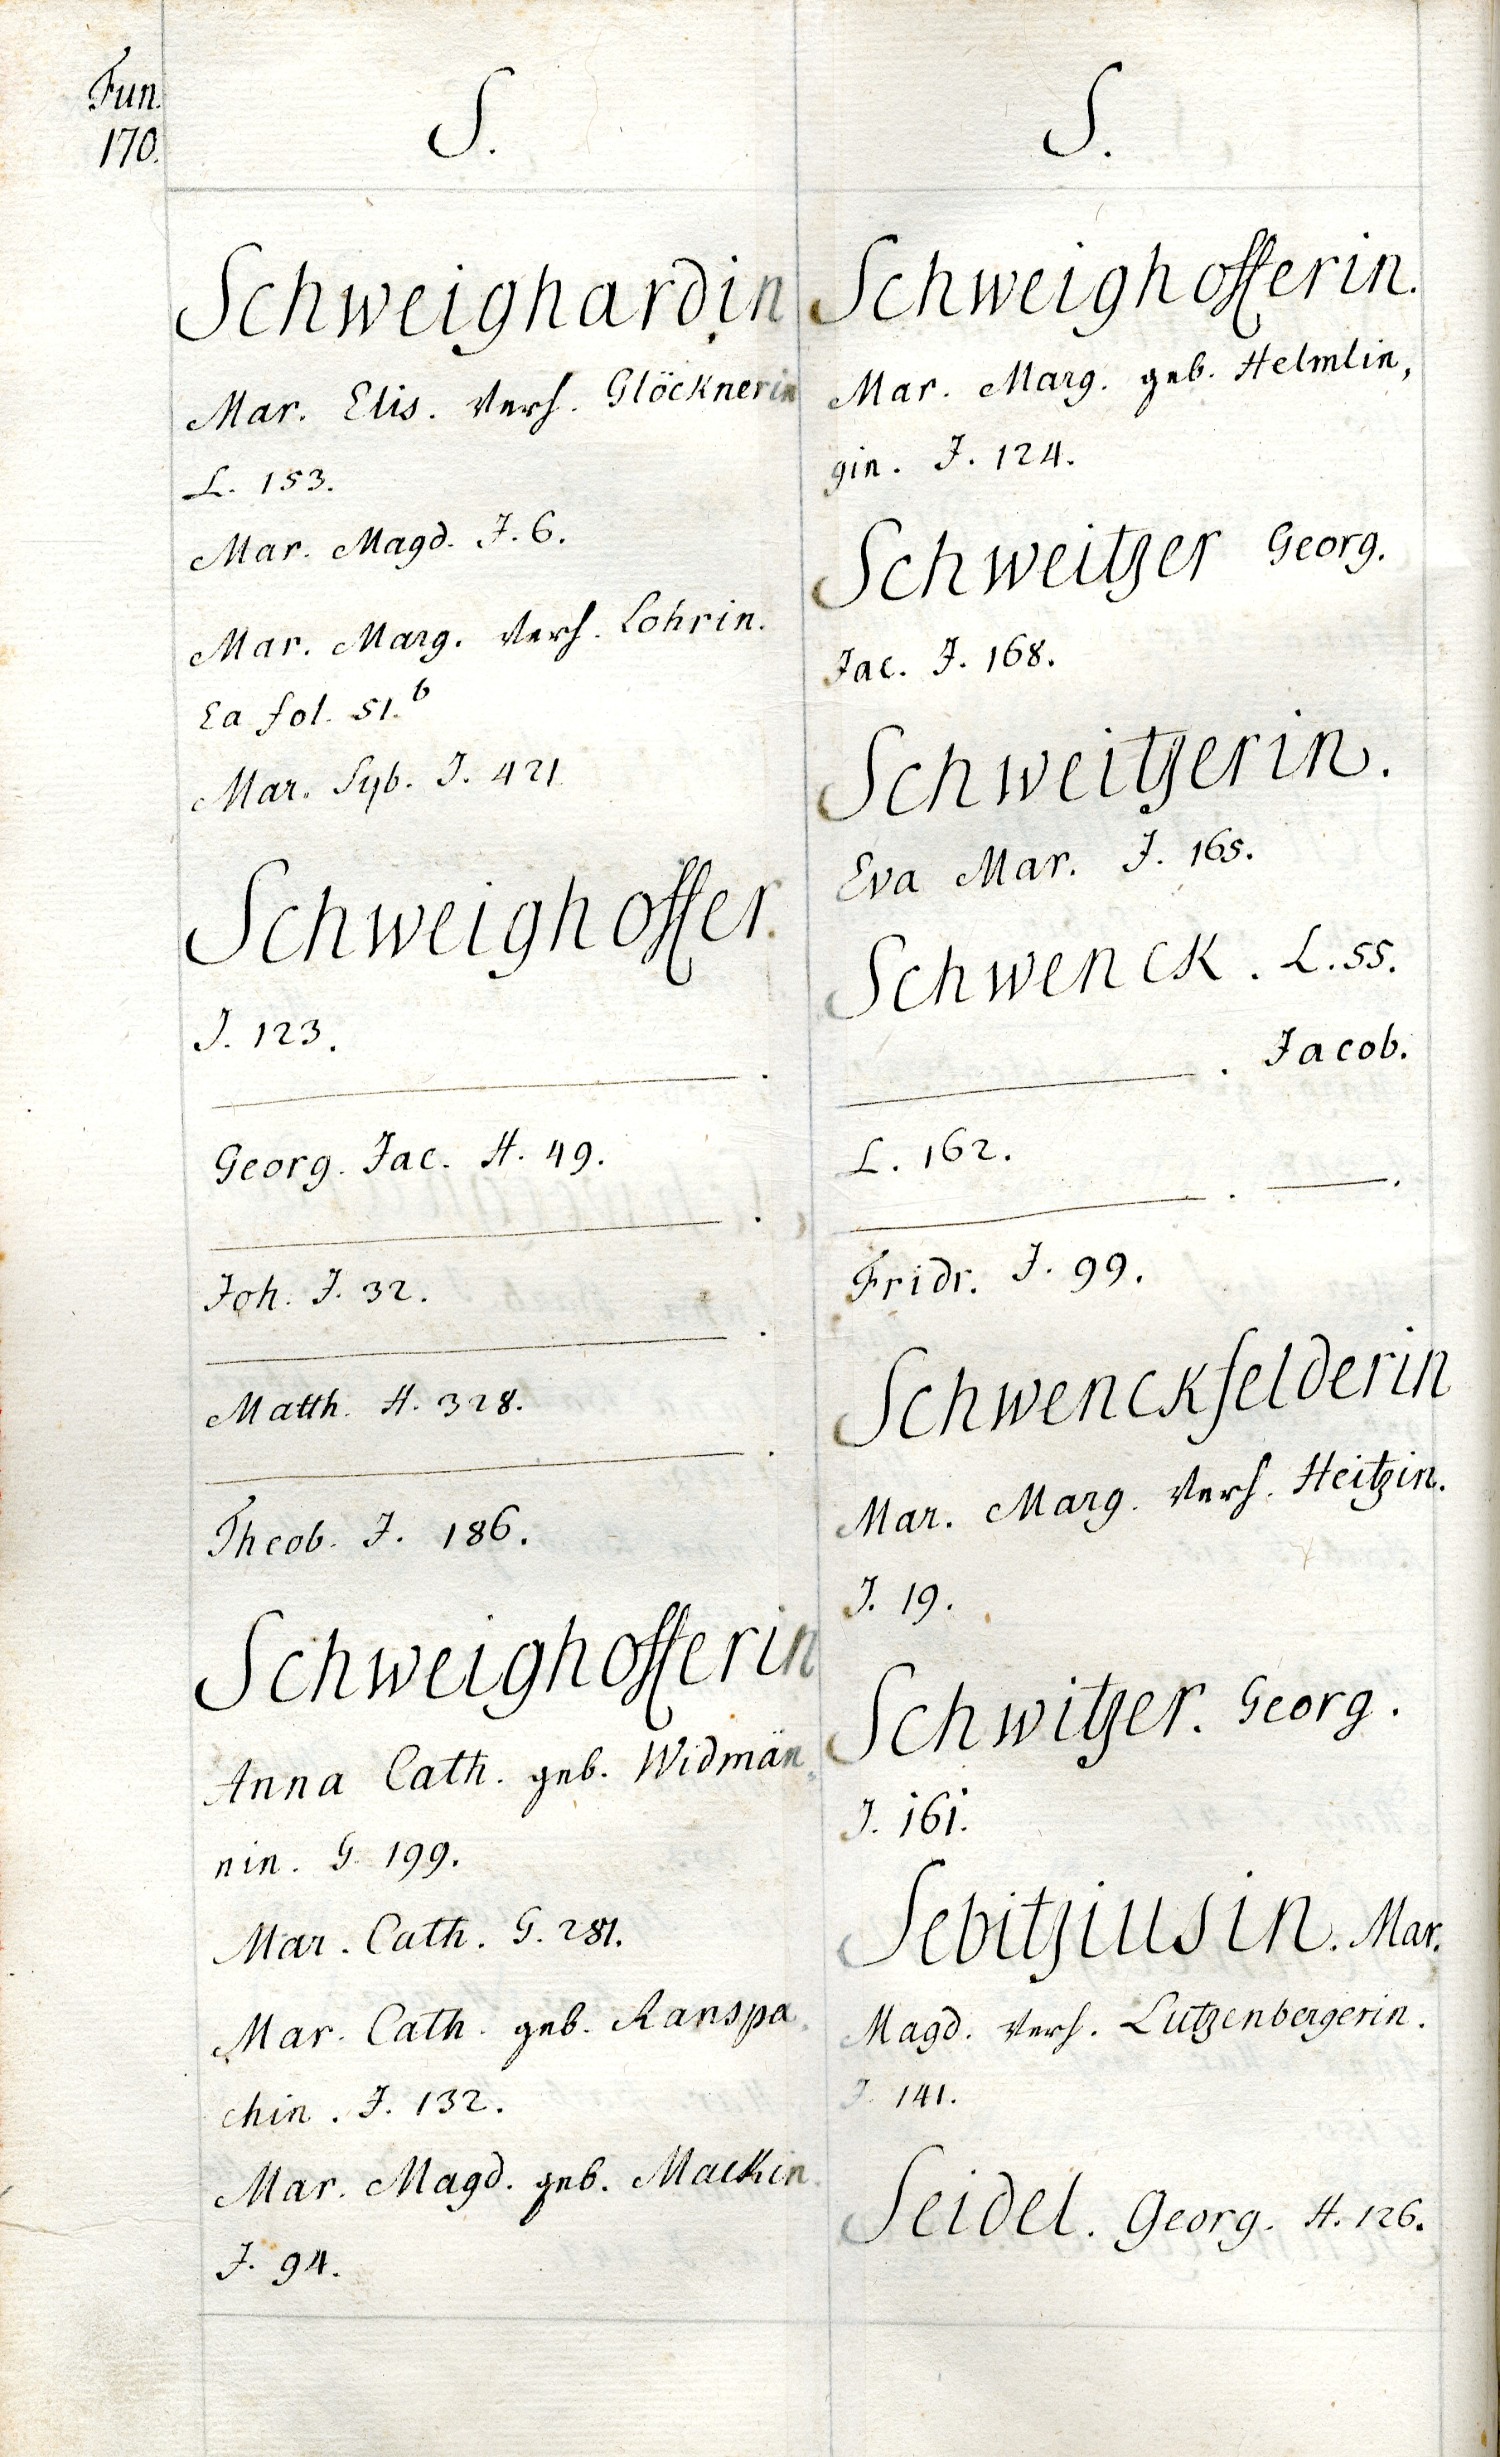 Fun.
170.
S.
Schweighardin
Mar. Elis. verh. Glöcknerin
L. 153.
Mar. Magd. J. 6.
Mar. Marg. verh. Lohrin.
Ea fol. 51.b
Mar. Syb. J. 421
Schweighoffer.
J. 123.
———.
Georg. Jac. H. 49.
———.
Joh. J. 32.
———.
Matth. H. 328.
———.
Theob. J. 186.
Schweighofferin
Anna Cath. geb. Widmän,
nin. G. 199.
Mar. Cath. G. 281.
Mar. Cath. geb. Ranspa,
chin. J. 132.
Mar. Magd. geb. Mackin.
J. 94.
S.
Schweighofferin.
Mar. Marg. geb. Helmlin,
gin. J. 124.
Schweitzer Georg.
Jac. J. 168.
Schweitzerin.
Eva Mar. J. 165.
Schwenck. L. 55.
———. Jacob.
L. 162.
———. ———.
Fridr. J. 99.
Schwenckfelderin
Mar. Marg. verh. Heitzin.
J. 19.
Schwitzer. Georg.
J. 161.
Sebitziusin. Mar.
Magd. verh. Lutzenbergerin.
J. 141.
Seidel. Georg. H. 126.